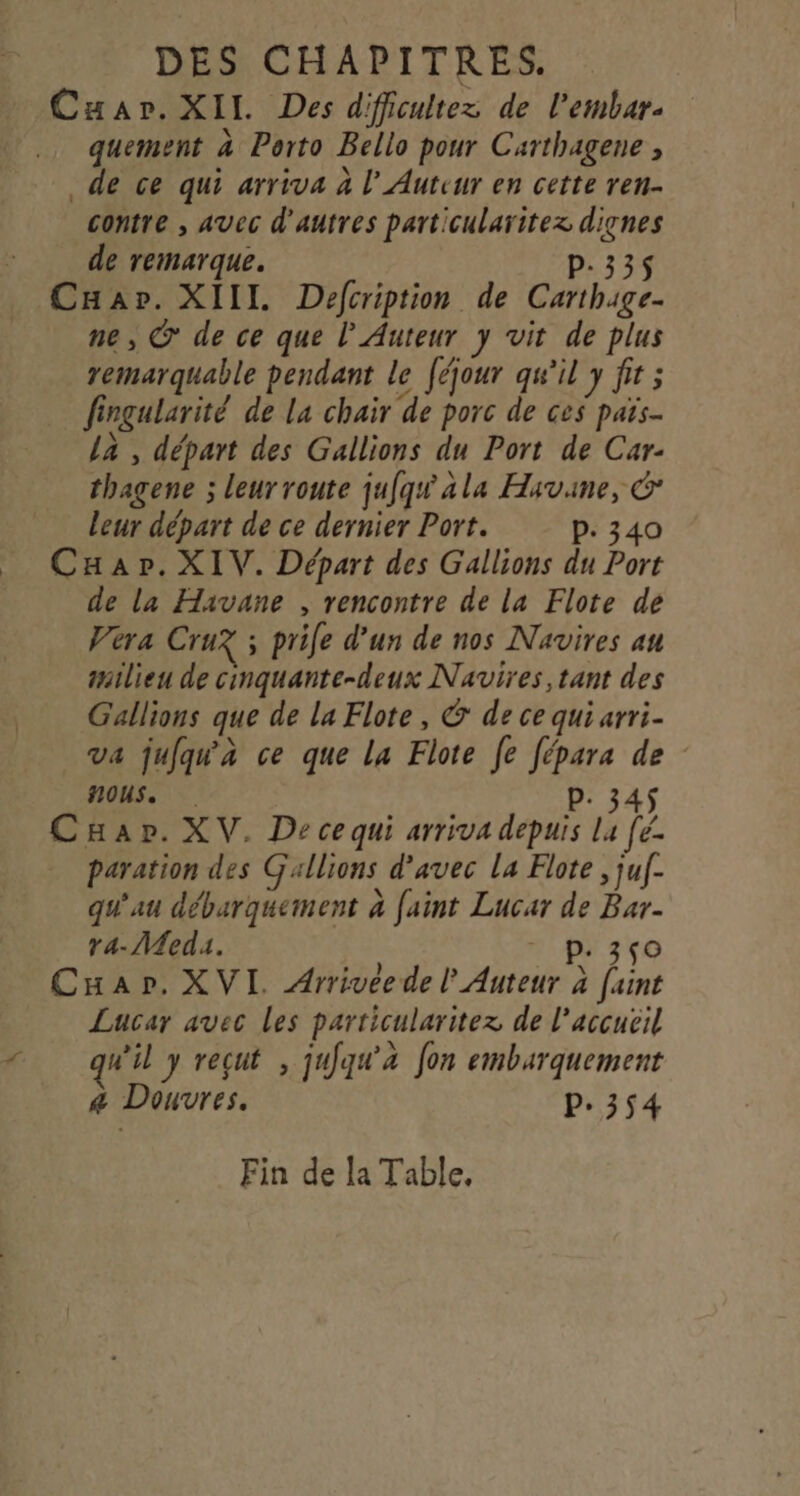 DES CHAPITRES.
CHAP. XII. Des difficultez de l'embar-
quement à Porto Bello pour Carthagene,
de ce qui arriva à l'Auteur en cette ren-
contre, avec d'autres particularitez dignes
de remarque. p. 335
CHAP. XIII. Deſcription de Carthage-
ne, & de ce que l'Auteur y vit de plus
remarquable pendant le ſéjour qu'il y fit;
ſingularité de la chair de porc de ces païs-
là, départ des Gallions du Port de Car-
thagene; leur route juſqu'à la Havane, &
leur départ de ce dernier Port. p. 340
CHAP. XIV. Départ des Gallions du Port
de la Havane, rencontre de la Flote de
Vera Cruz; priſe d'un de nos Navires au
milieu de cinquante-deux Navires, tant des
Gallions que de la Flote, & de ce qui arri-
va juſqu'à ce que la Flote ſe ſépara de
nous. p. 345
CHAP. XV. De ce qui arriva depuis la ſé-
paration des Gallions d'avec la Flote, juſ-
qu'au débarquement à ſaint Lucar de Bar-
ra-Meda. p. 350
CHAP. XVI. Arrivée de l'Auteur à ſaint
Lucar avec les particularitez de l'accuëil
qu'il y reçut, juſqu'à ſon embarquement
à Douvres. p. 354
Fin de la Table.